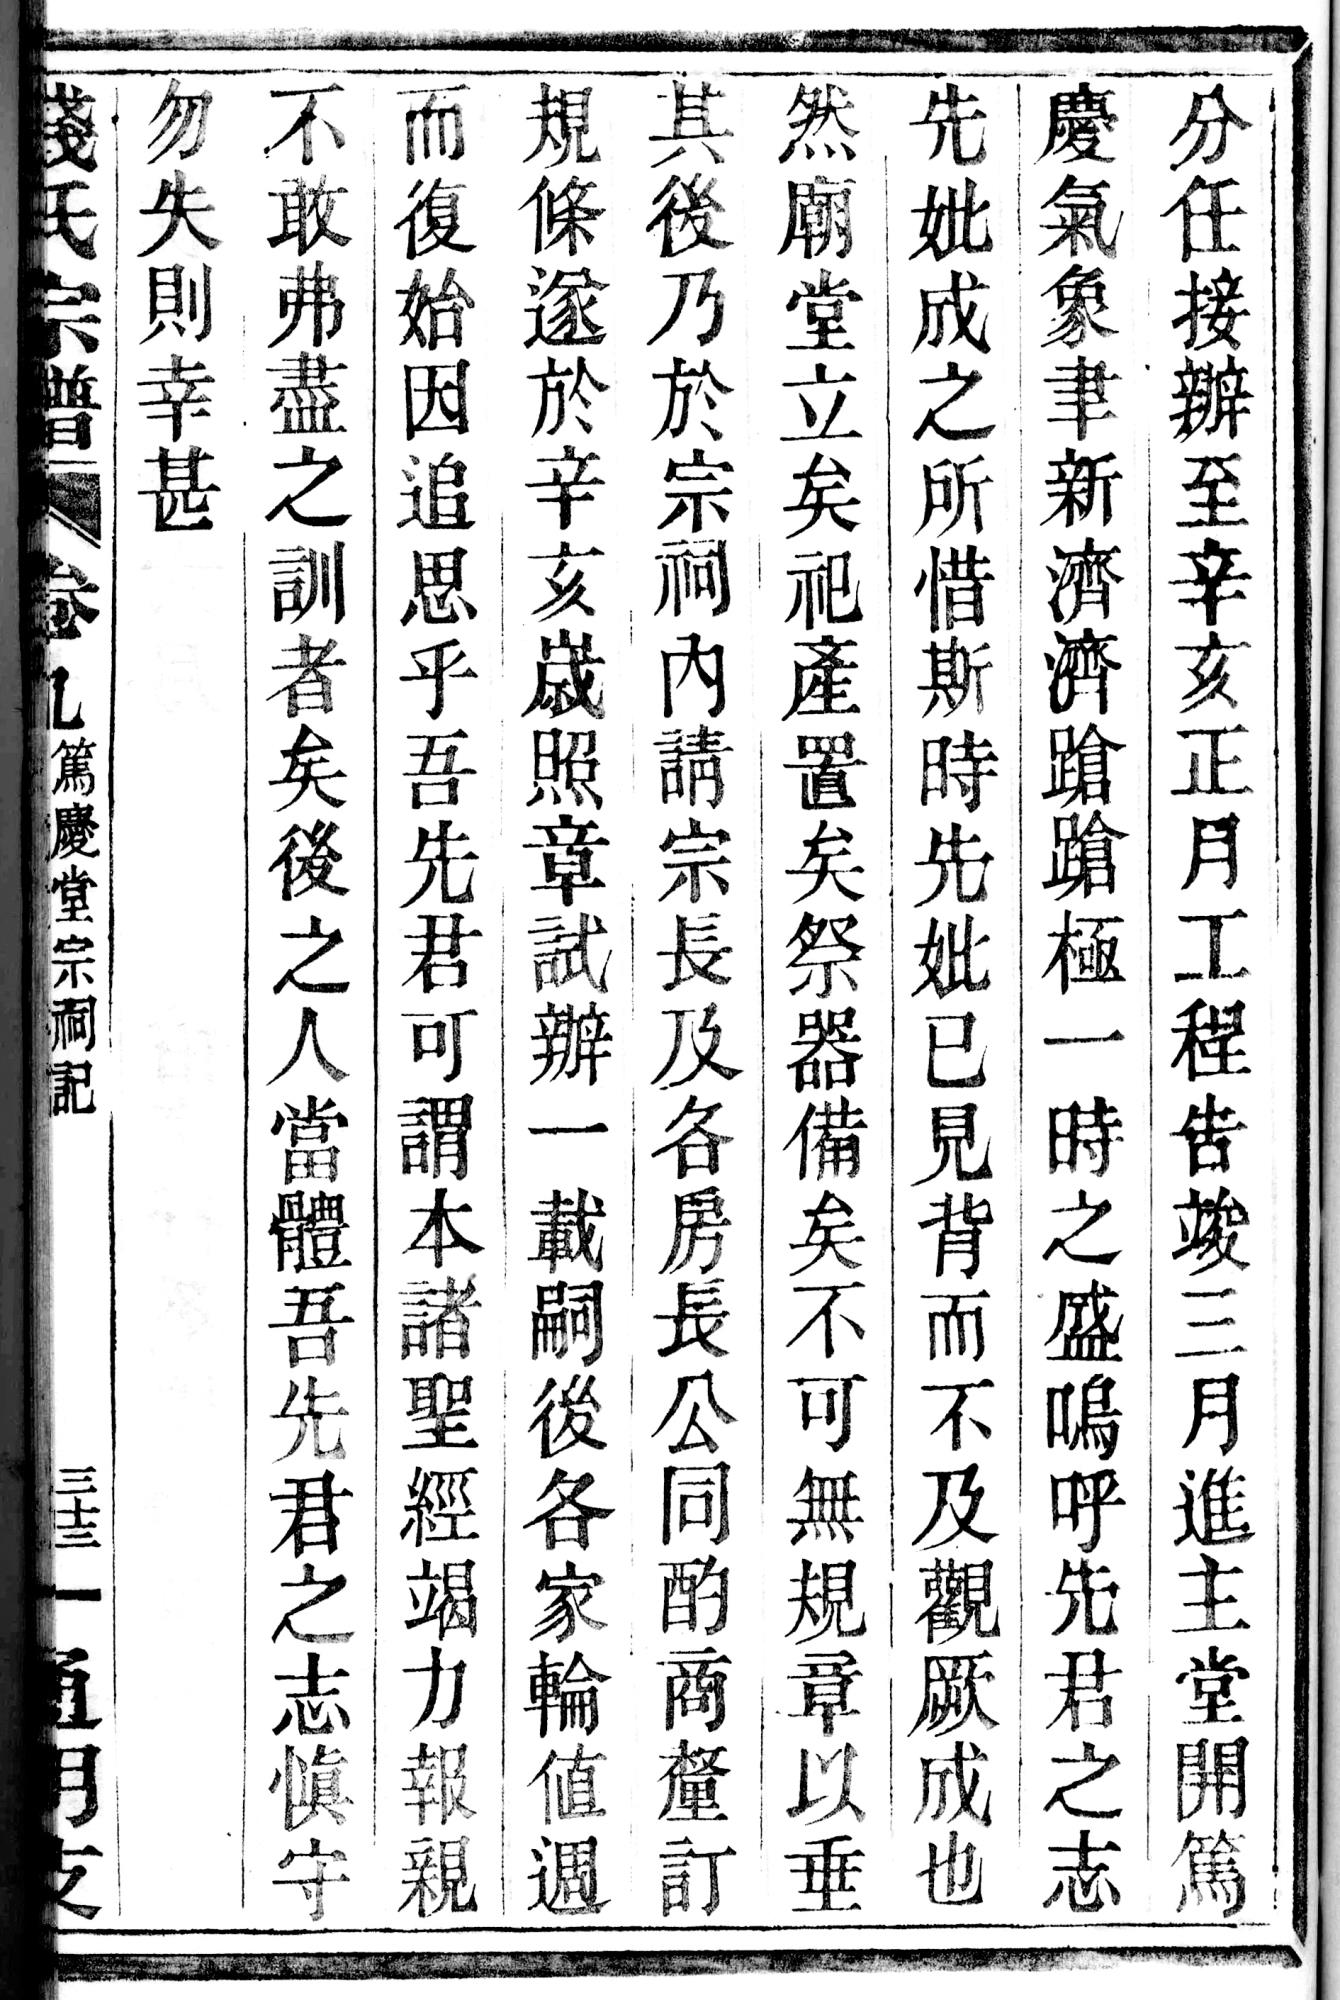 分任接辦至辛亥正月工程告竣三月進主堂開篤
慶氣象聿新濟濟蹌蹌極一時之盛嗚呼先君之志
先妣成之所惜斯時先妣已見背而不及觀厥成也
然廟堂立矣祀產置矣祭器備矣不可無規章以垂
其後乃於宗祠內請宗長及各房長公同酌商釐訂
規條遂於辛亥歲照章試辦一載嗣後各家輪值週
而復始因追思乎吾先君可謂本諸聖經竭力報親
不敢弗盡之訓者矣後之人當體吾先君之志慎守
勿失則幸甚
錢氏宗譜 卷九 篤慶堂宗祠記 三十三 一 通明支